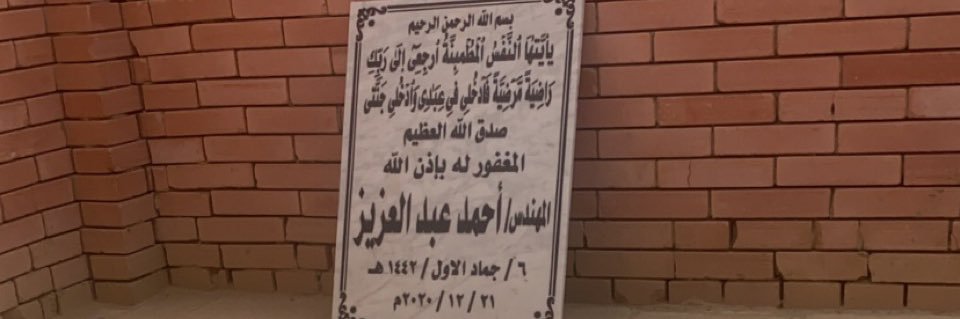 بسم الله الرحمن الرحيم
يأيتها النفس المطمئنة ارجعي إلى ربك
راضية مرضية فادخلي في عبادي وادخلي جنتي
صدق الله العظيم
المغفور له بإذن الله
المهندس/ أحمد عبد العزيز
٦ / جماد الاول / ١٤٤٢ هـ
٢١ / ١٢ / ٢٠٢٠م